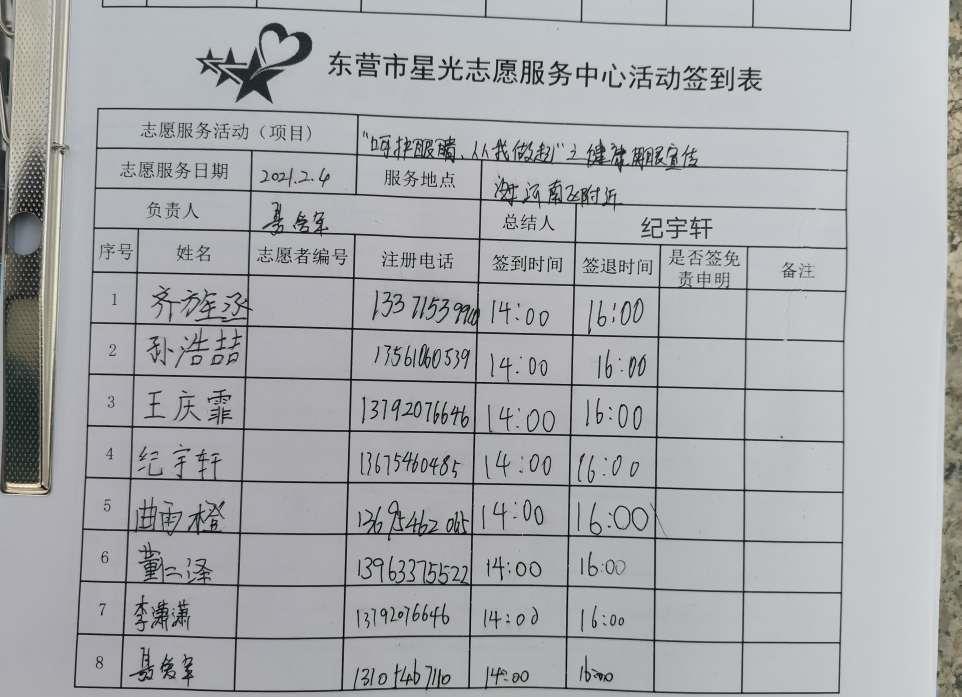 东营市星光志愿服务中心活动签到表
志愿服务活动（项目） “呵护眼睛、从我做起”之健康用眼宣传
志愿服务日期 2021.2.4 服务地点 附近
负责人 总结人 纪宇轩
序号 姓名 志愿者编号 注册电话 签到时间 签退时间 是否签免责申明 备注
1 齐 丞 14:00 16:00
2 孙浩喆 13561060539 14:00 16:00
3 王庆霏 13792076646 14:00 16:00
4 纪宇轩 13675460485 14:00 16:00
5 曲雨橙 14:00 16:00
6 董二泽 13963375522 14:00 16:00
7 李潇潇 13792076646 14:00 16:00
8 14:00 16:00